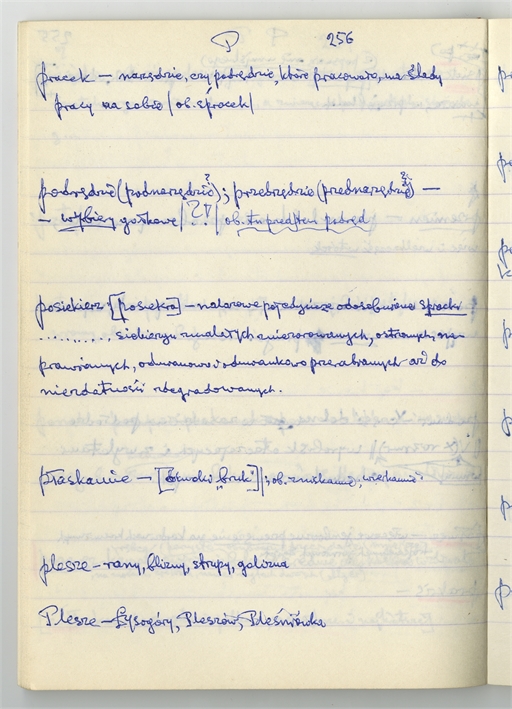 P 256
pracek – narzędzie, czy podrzędzie, które pracowało, ma ślady
pracy na sobie /ob. spracek/
podrzędzie (podnarzędzie?); przebrzędzie (prednarzędzie?) –
– wybiery gałkowe /?!/ ob. tu predtem potrąd
posiekierz [posiekra] – nalazowe pojedyńcze odosobnione spracki
.......... siekieryn zmalałych zniezowanych, ostronych, na-
prawianych, odnawianych odnawiankowo przerabianych aż do
niezdatności zdegradowanych.
płaskanie – [ "bruk"]; ob. znikanie, wiekanie
plesze – rany, blizny, strupy, golizna
Plesze – Łysogóry, Pleszów, Pleśniówka